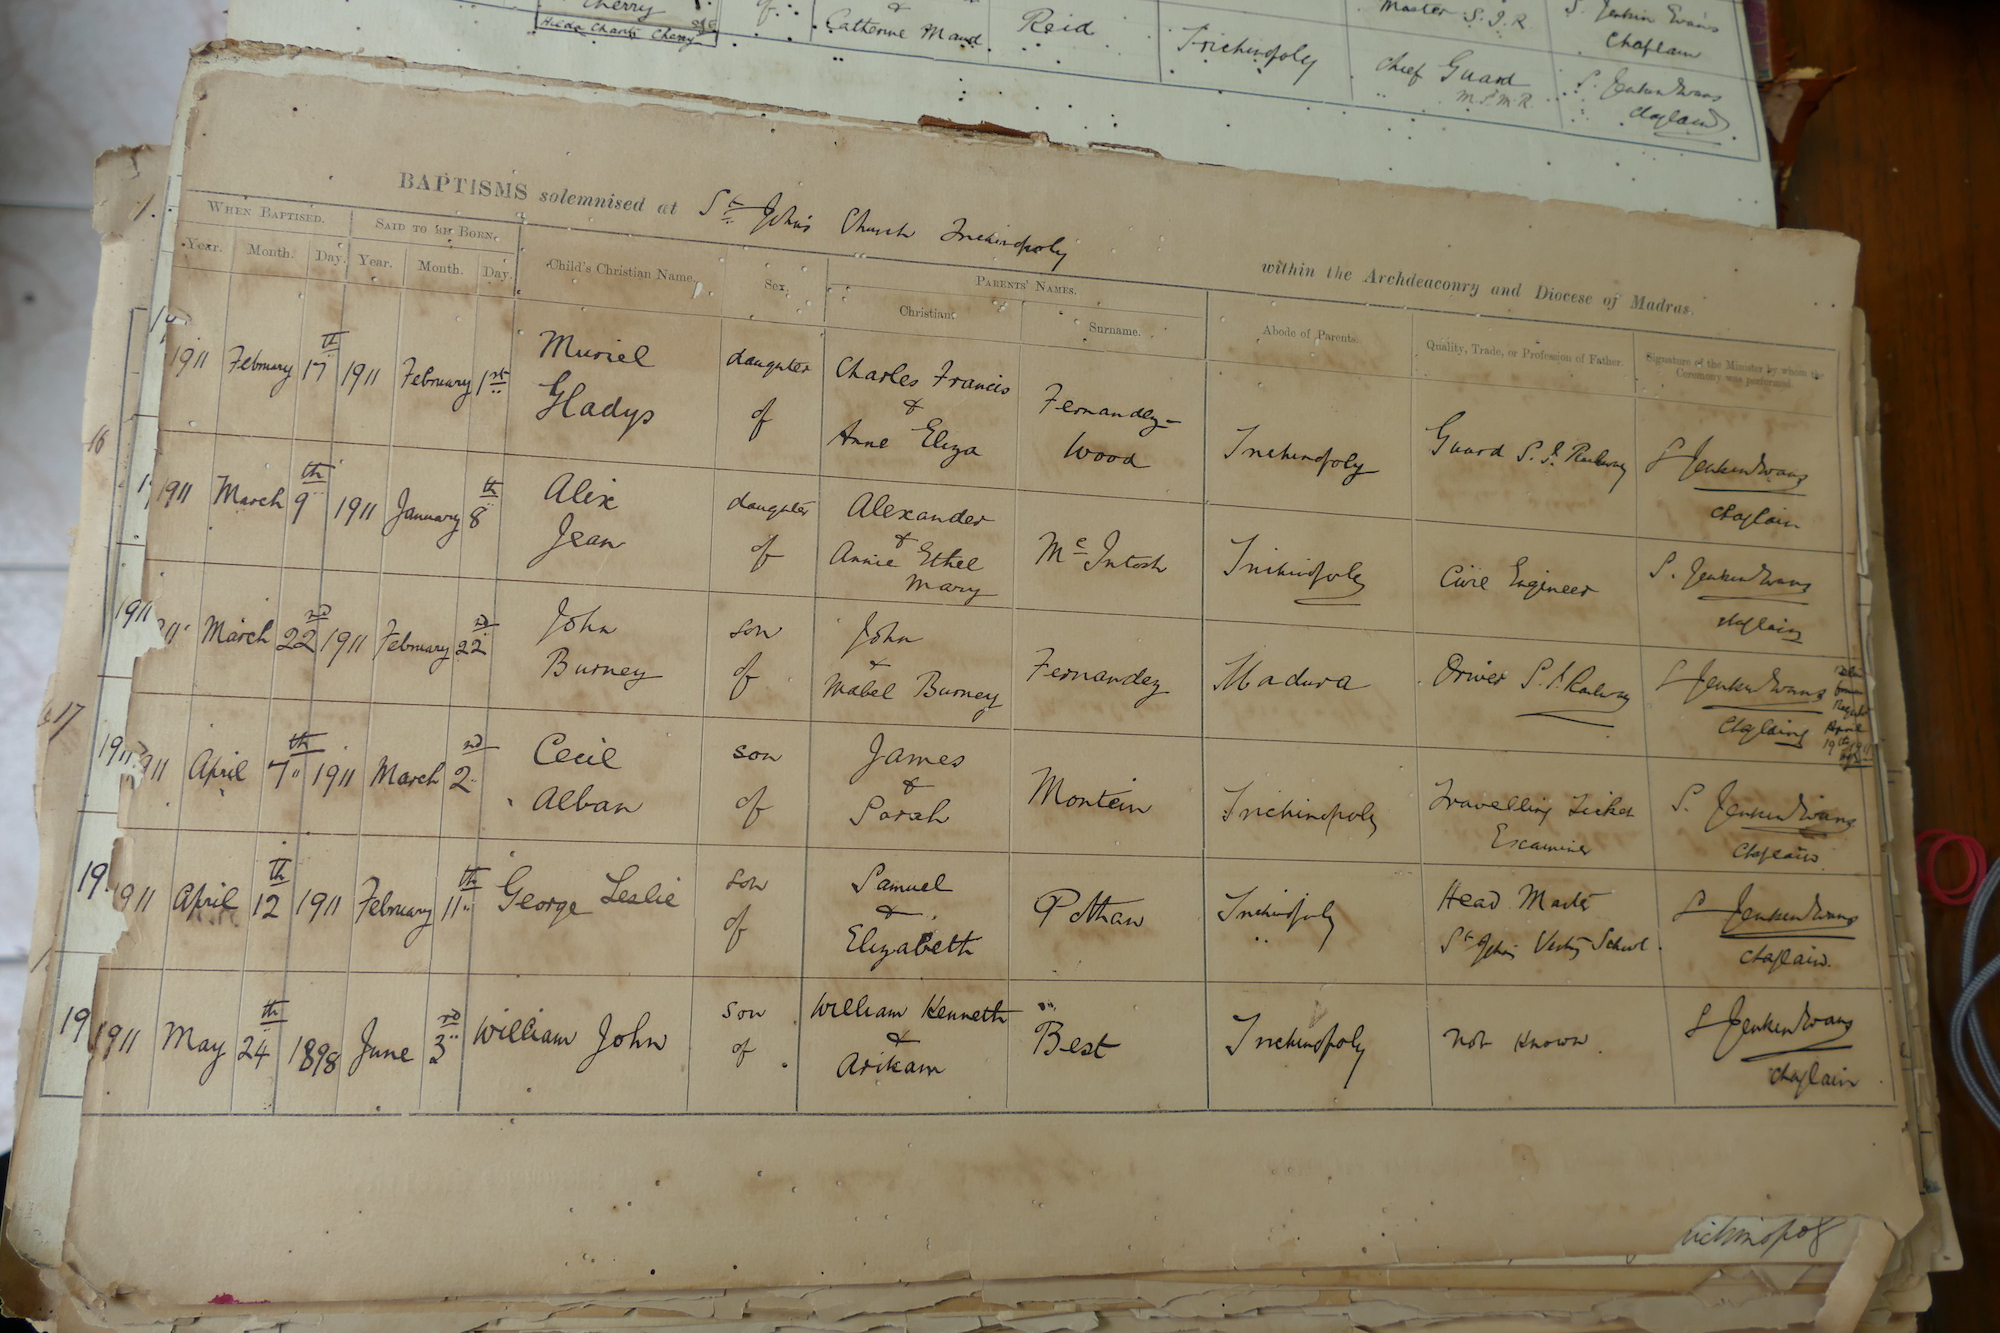 Cherry
Hilda Charis Cherry
&
Catherine Maud
Reid
Trichinopoly
Master S.I.R
Chief Guard
M.S.M.R.
S. Jenkin Evans
Chaplain
S. Jenkin Evans
Chaplain
BAPTISMS solemnised at St. John's Church Trichinopoly within the Archdeaconry and Diocese of Madras.
WHEN BAPTISED. SAID TO BE BORN. Child's Christian Name. Sex. PARENTS' NAMES. Abode of Parents. Quality, Trade, or Profession of Father. Signature of the Minister by whom the
Ceremony was performed.
Year. Month. Day. Year. Month. Day. Christian. Surname.
1911 February 17th 1911 February 1st Muriel daughter Charles Francis Fernandez-
Gladys of & Wood Trichinopoly Guard S.I. Railway S Jenkin Evans
Anne Eliza Chaplain
1911 March 9th 1911 January 8th Alix daughter Alexander
Jean of & Mc Intosh Trichinopoly Civil Engineer S. Jenkin Evans
Annie Ethel Chaplain
Mary
1911 March 22nd 1911 February 22nd John son John
Burney of & Fernandez Madura Driver S.I. Railway S Jenkin Evans
Mabel Burney Chaplain
April
19th 1911
1911 April 7th 1911 March 2nd Cecil son James
Alban of & Montein Trichinopoly Travelling Ticket S. Jenkin Evans
Sarah Examiner Chaplain
1911 April 12th 1911 February 11th George Leslie son Samuel
of & Pothan Trichinopoly Head Master S Jenkin Evans
Elizabeth St John's Vestry School. Chaplain.
1911 May 24th 1898 June 3rd William John son William Kenneth
of & Best Trichinopoly Not Known. S Jenkin Evans
Arikam Chaplain
richinopoly